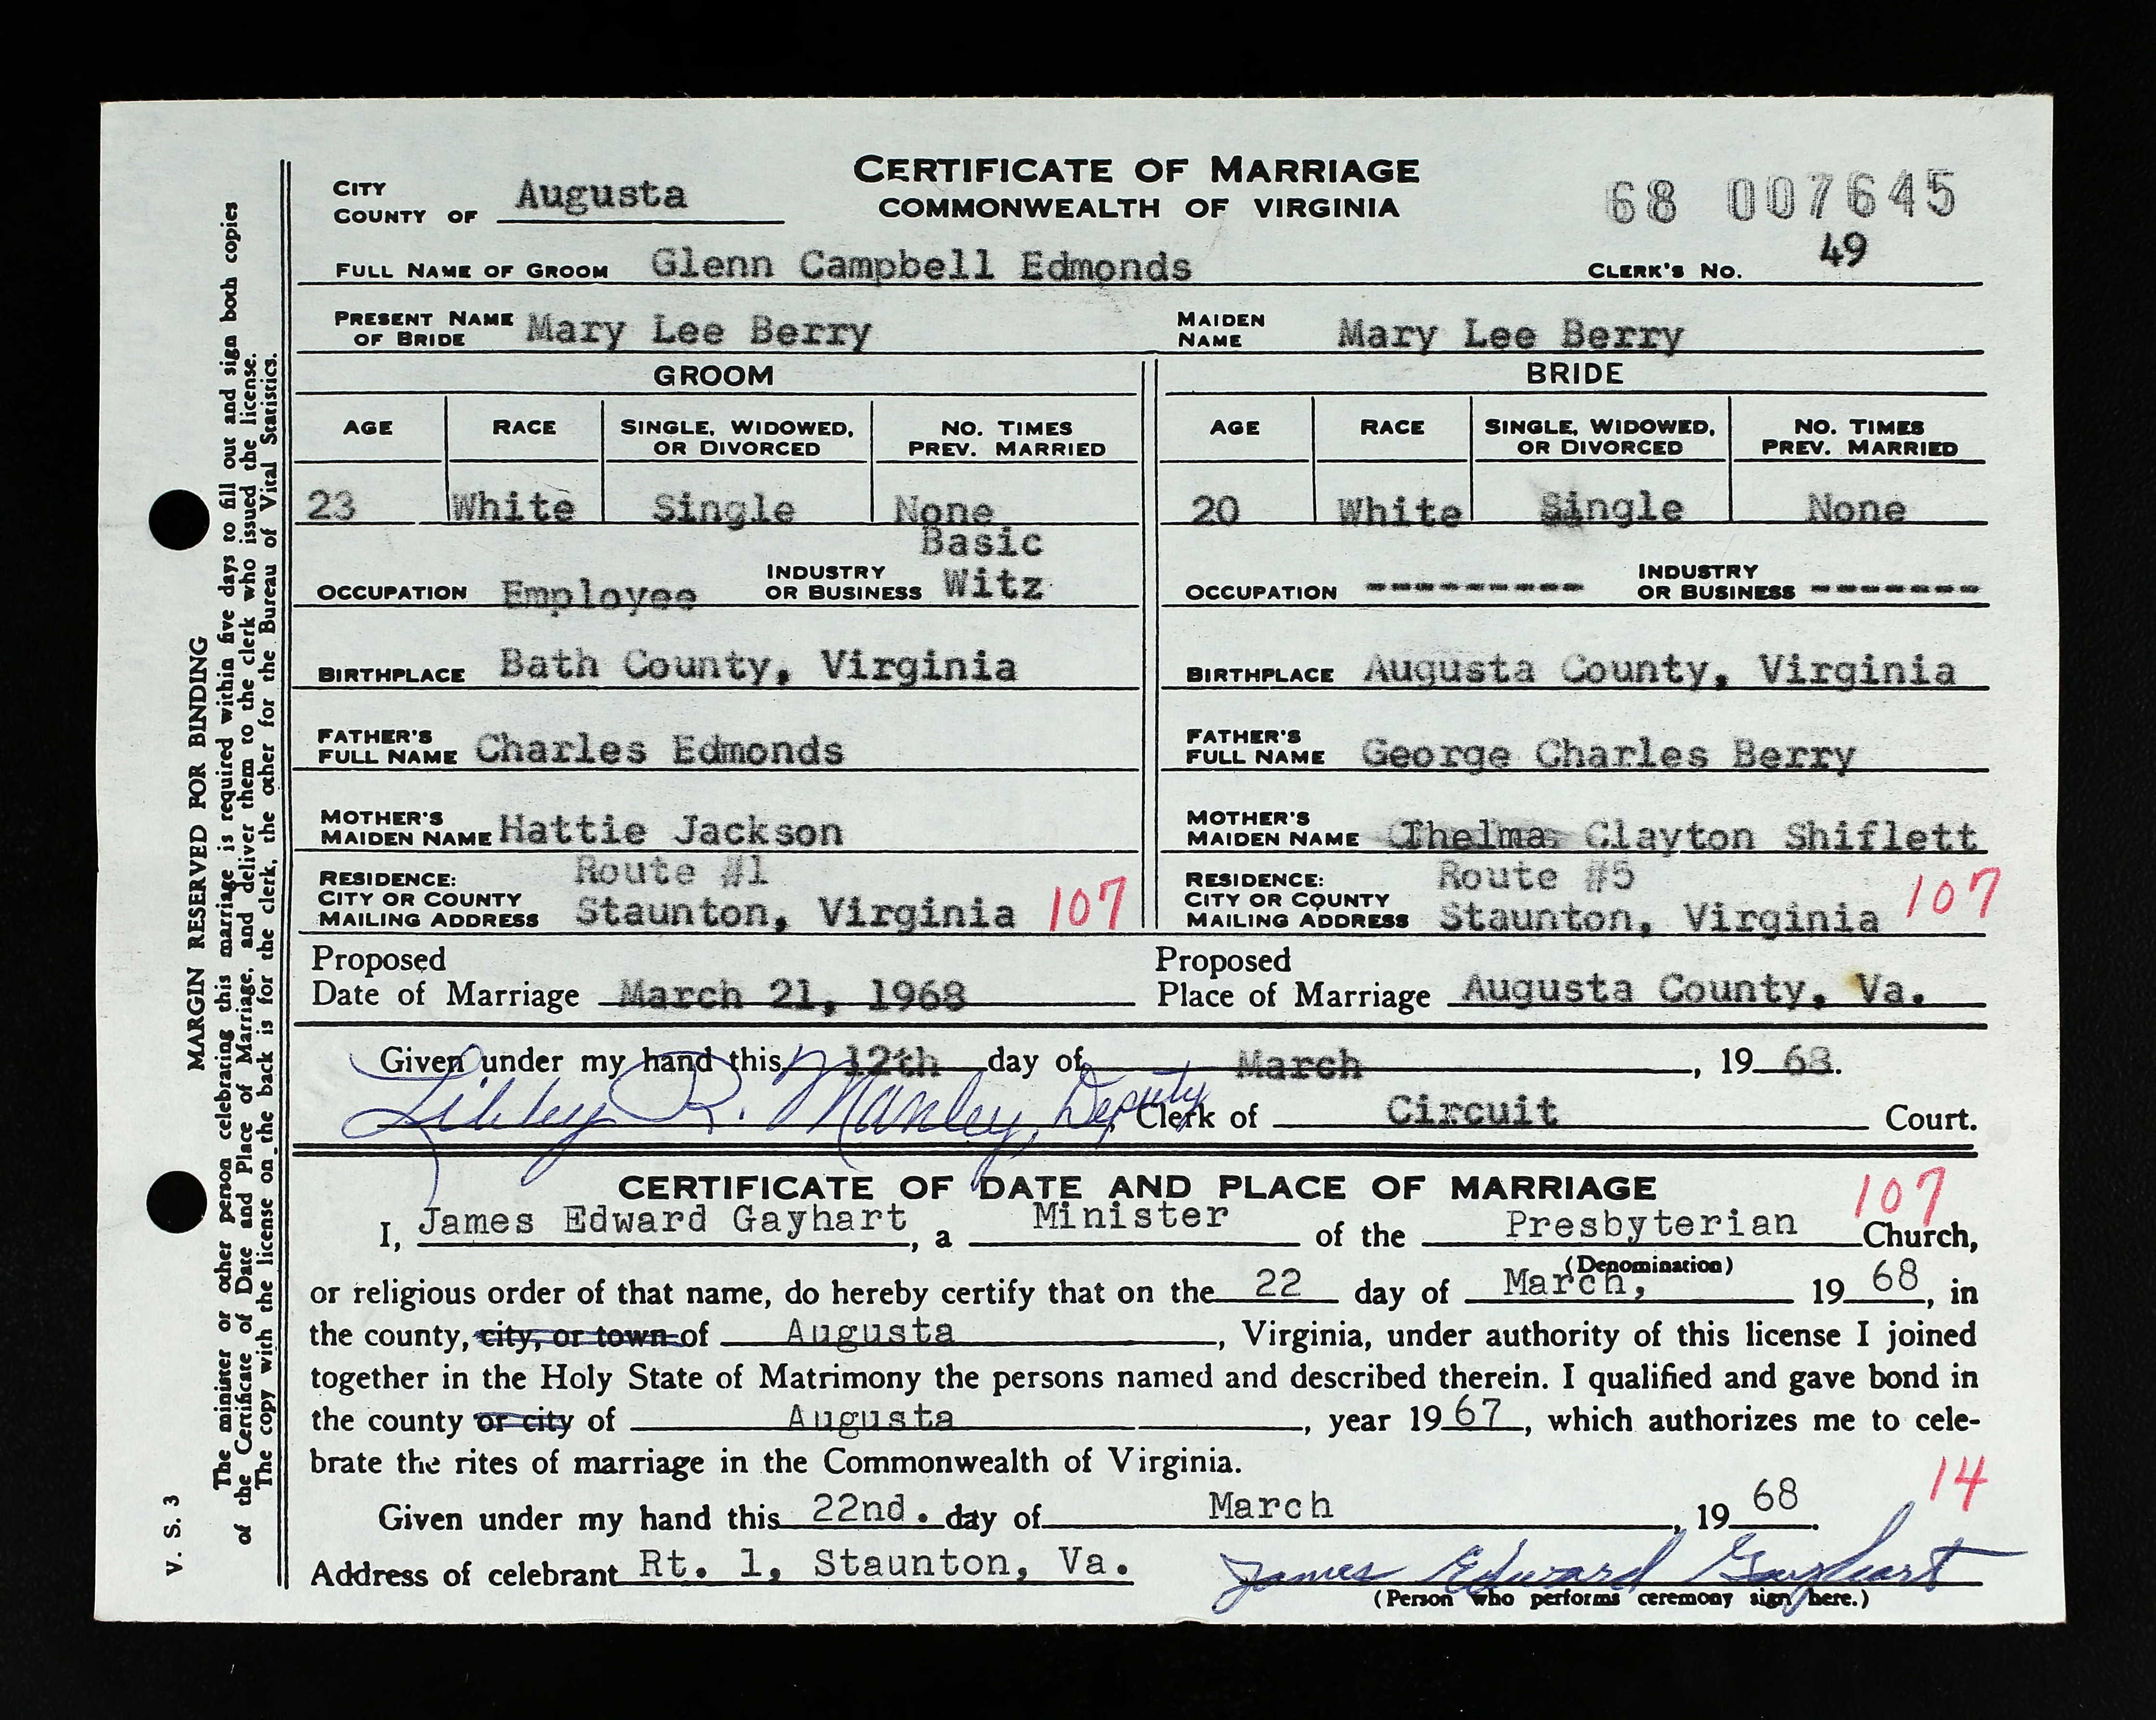 CERTIFICATE OF MARRIAGE
COMMONWEALTH OF VIRGINIA
CITY
COUNTY OF Augusta
68 007645
FULL NAME OF GROOM Glenn Campbell Edmonds CLERK'S NO. 49
PRESENT NAME OF BRIDE Mary Lee Berry MAIDEN NAME Mary Lee Berry
GROOM BRIDE
AGE RACE SINGLE, WIDOWED, OR DIVORCED NO. TIMES PREV. MARRIED AGE RACE SINGLE, WIDOWED, OR DIVORCED NO. TIMES PREV. MARRIED
23 White Single None 20 White Single None
OCCUPATION Employee INDUSTRY OR BUSINESS Basic Witz OCCUPATION --------- INDUSTRY OR BUSINESS -------
BIRTHPLACE Bath County, Virginia BIRTHPLACE Augusta County, Virginia
FATHER'S FULL NAME Charles Edmonds FATHER'S FULL NAME George Charles Berry
MOTHER'S MAIDEN NAME Hattie Jackson MOTHER'S MAIDEN NAME Thelma Clayton Shiflett
RESIDENCE: CITY OR COUNTY MAILING ADDRESS Route #1 Staunton, Virginia 107 RESIDENCE: CITY OR COUNTY MAILING ADDRESS Route #5 Staunton, Virginia 107
Proposed Date of Marriage March 21, 1968 Proposed Place of Marriage Augusta County, Va.
Given under my hand this 12th day of March, 19 68.
Libby R. Manley, Deputy Clerk of Circuit Court.
CERTIFICATE OF DATE AND PLACE OF MARRIAGE 107
I, James Edward Gayhart, a Minister of the Presbyterian Church,
(Denomination)
or religious order of that name, do hereby certify that on the 22 day of March, 19 68, in
the county, city, or town of Augusta, Virginia, under authority of this license I joined
together in the Holy State of Matrimony the persons named and described therein. I qualified and gave bond in
the county or city of Augusta, year 19 67, which authorizes me to cele-
brate the rites of marriage in the Commonwealth of Virginia.
14
Given under my hand this 22nd. day of March, 19 68.
Address of celebrant Rt. 1, Staunton, Va. James Edward Gayhart
(Person who performs ceremony sign here.)
V. S. 3
MARGIN RESERVED FOR BINDING
The minister or other person celebrating this marriage is required within five days to fill out and sign both copies
of the Certificate of Date and Place of Marriage, and deliver them to the clerk who issued the license.
The copy with the license on the back is for the clerk, the other for the Bureau of Vital Statistics.